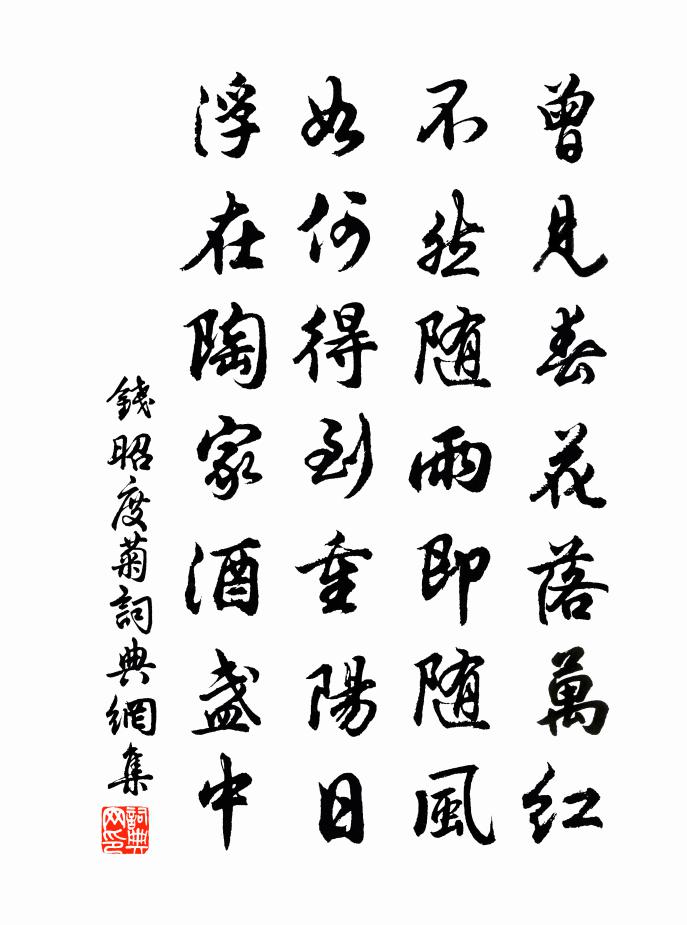 曾見春花落萬紅
不然随雨即随風
如何得到重陽日
浮在陶家酒盞中
錢昭度菊詞典網集
詞典网印